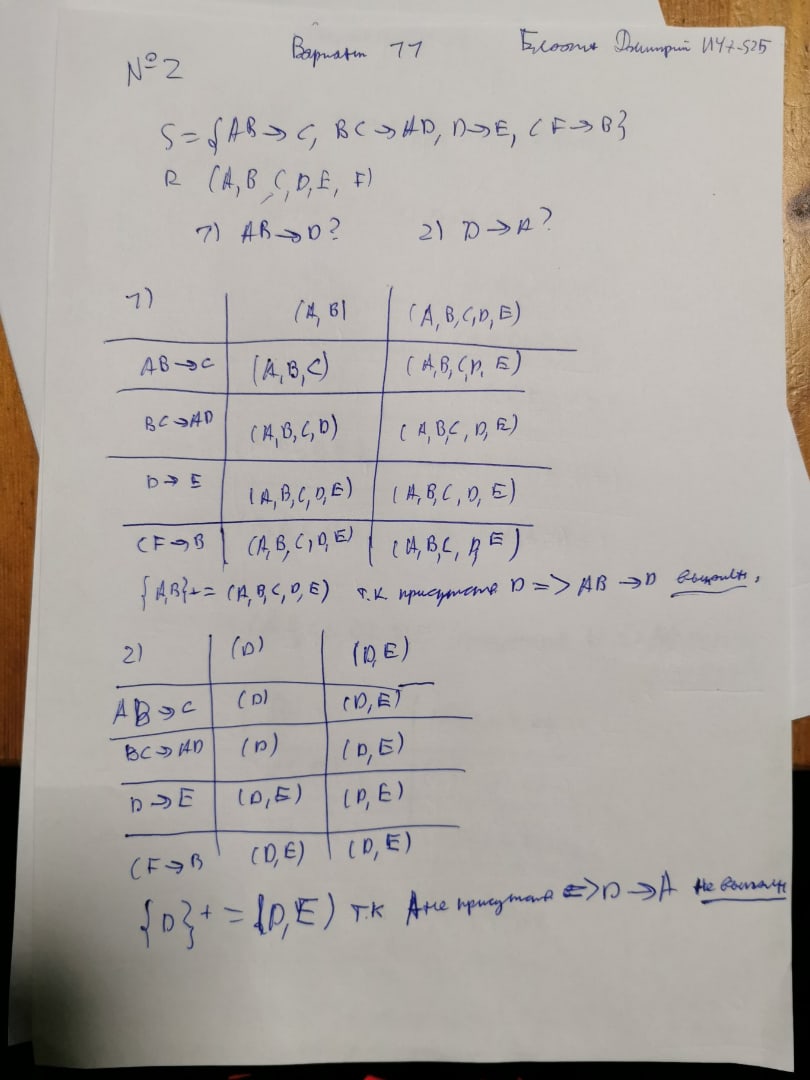 Вариант 11 Дмитрий ИУ7-52Б
№2
S={AB→C, BC→AD, D→E, CF→B}
R (A,B,C,D,E,F)
1) AB→D? 2) D→A?
1) (A,B) (A,B,C,D,E)
AB→C (A,B,C) (A,B,C,D,E)
BC→AD (A,B,C,D) (A,B,C,D,E)
D→E (A,B,C,D,E) (A,B,C,D,E)
CF→B (A,B,C,D,E) (A,B,C,D,E)
{A,B}+= (A,B,C,D,E) т.к. присутств D => AB→D выполн.
2) (D) (D,E)
AB→C (D) (D,E)
BC→AD (D) (D,E)
D→E (D,E) (D,E)
CF→B (D,E) (D,E)
{D}+ ={D,E) т.к A не присутств => D→A не выполн